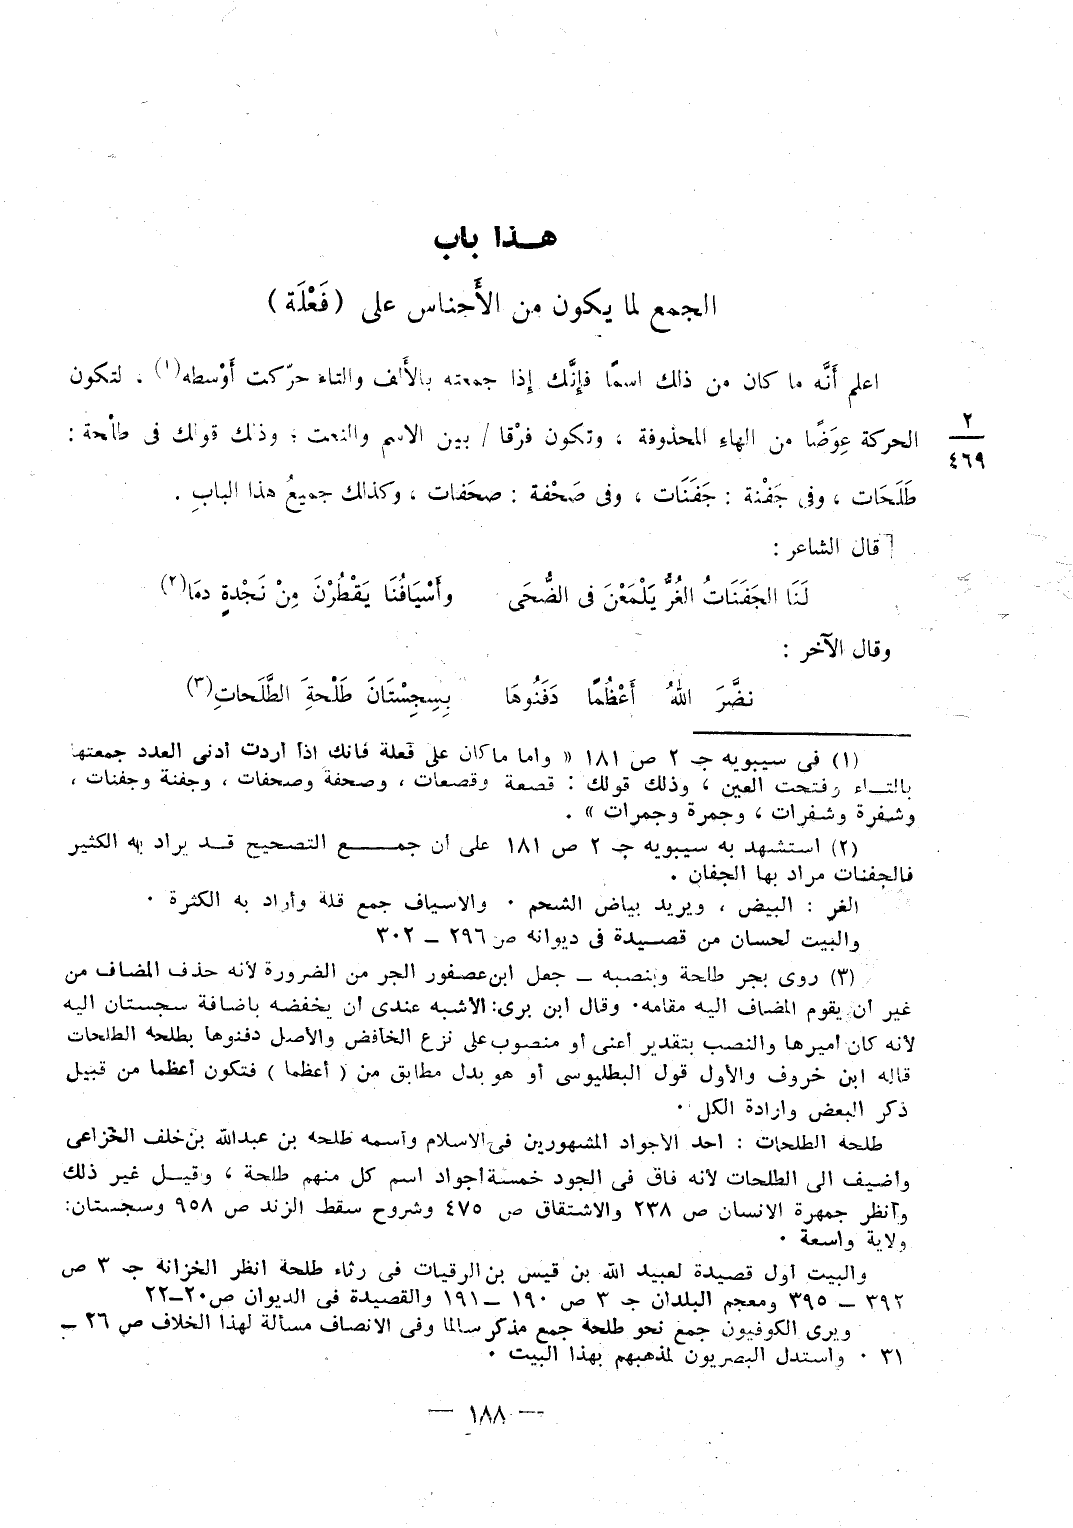 هـــذا باب
الجمع لما يكون من الأَجناس على ( فَعْلَة )
اعلم أَنَّه ما كان من ذلك اسمًا فإِنَّك إِذا جمعته بالأَلف والتاء حرّكت أَوْسطه(١) ، لتكون
الحركة عِوَضًا من الهاءِ المحذوفة ، وتكون فرْقا / بين الاسم والنعت ؛ وذلك قولك فى طلْحة :
٢
٤٦٩
طَلَحَات ، وفى جَفْنة : جَفَنَات ، وفى صَحْفة : صحَفات ، وكذلك جميعُ هذا البابِ .
[ قال الشاعر :
لَنَا الجَفَنَاتُ الغُرُّ يَلْمَعْنَ فى الضُّحَى وأَسْيَافُنَا يَقْطُرْنَ مِنْ نَجْدةٍ دمَا(٢)
وقال الآخر :
نضَّرَ اللهُ أَعْظُمًا دَفَنُوهَا بِسِجِسْتَانَ طَلْحةَ الطَّلَحاتِ(٣)
(١) فى سيبويه جـ ٢ ص ١٨١ « واما ما كان على فعلة فانك اذا أردت أدنى العدد جمعتها
بالتـــاء وفتحت العين ، وذلك قولك : قصعة وقصعات ، وصحفة وصحفات ، وجفنة وجفنات ،
وشفرة وشفرات ، وجمرة وجمرات » .
(٢) استشهد به سيبويه جـ ٢ ص ١٨١ على أن جمـــــع التصحيح قــد يراد به الكثير
فالجفنات مراد بها الجفان .
الغر : البيض ، ويريد بياض الشحم ٠ والاسياف جمع قلة وأراد به الكثرة ٠
والبيت لحسان من قصــيدة فى ديوانه ص ٢٩٦ ــ ٣٠٢
(٣) روى بجر طلحة وبنصبه ــ جعل ابن عصفور الجر من الضرورة لأنه حذف المضاف من
غير أن يقوم المضاف اليه مقامه٠ وقال ابن برى: الأشبه عندى أن يخفضه باضافة سجستان اليه
لأنه كان أميرها والنصب بتقدير أعنى أو منصوب على نزع الخافض والأصل دفنوها بطلحة الطلحات
قاله ابن خروف والأول قول البطليوسى أو هو بدل مطابق من ( أعظما ) فتكون أعظما من قبيل
ذكر البعض وارادة الكل ٠
طلحة الطلحات : أحد الأجواد المشهورين فى الاسلام وأسمه طلحه بن عبدالله بن خلف الخزاعى
وأضيف الى الطلحات لأنه فاق فى الجود خمسة أجواد اسم كل منهم طلحة ، وقيــل غير ذلك
وأنظر جمهرة الانسان ص ٢٣٨ والاشتقاق ص ٤٧٥ وشروح سقط الزند ص ٩٥٨ وسجستان:
ولاية واسعة ٠
والبيت أول قصيدة لعبيد الله بن قيس بن الرقيات فى رثاء طلحة انظر الخزانة جـ ٣ ص
٣٩٢ ــ ٣٩٥ ومعجم البلدان جـ ٣ ص ١٩٠ ــ ١٩١ والقصيدة فى الديوان ص٢٠ــ٢٢
ويرى الكوفيون جمع نحو طلحة جمع مذكر سالما وفى الانصاف مسألة لهذا الخلاف ص ٢٦ ــ
٣١ ٠ واستدل البصريون لمذهبهم بهذا البيت ٠
— ١٨٨ —